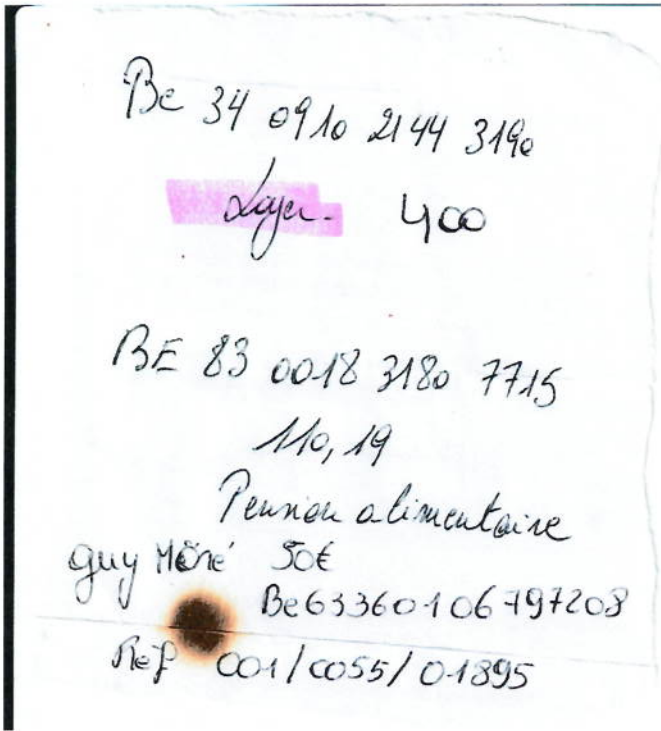 Be 34 0910 2144 3190
Loyer. 400
BE 83 0018 3180 7715
110,19
Pension alimentaire
guy Möré 50€
Be63360106797208
Ref 001/0055/01895